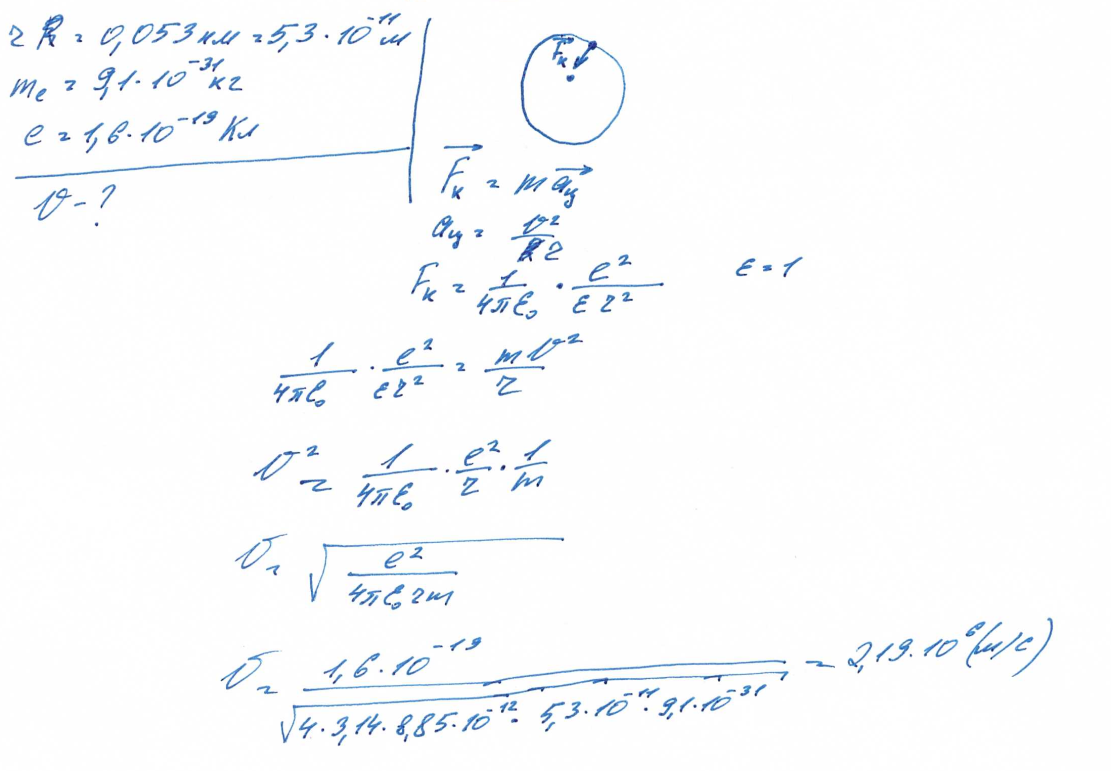 r R = 0,053 нм = 5,3·10⁻¹¹ м
mₑ = 9,1·10⁻³¹ кг
e = 1,6·10⁻¹⁹ Кл
v - ?
F⃗ₖ
F⃗ₖ = m a⃗ц
aц = v²/r
Fₖ = 1/(4πε₀) · e²/(εr²) ε = 1
1/(4πε₀) · e²/(εr²) = mv²/r
v² = 1/(4πε₀) · e²/r · 1/m
v = √(e²/(4πε₀rm))
v = 1,6·10⁻¹⁹/√(4·3,14·8,85·10⁻¹²·5,3·10⁻¹¹·9,1·10⁻³¹) = 2,19·10⁶ (м/с)